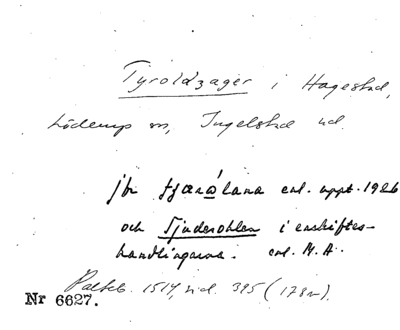 Tyroldzager i Hagestad,
Löderup sn, Ingelstad hd.
jfr tjæraˊlana enl. uppt. 1926
och Tjuderohlen i enskiftes-
handlingarna. enl. M.A.
1514, sid. 395 (178v).
Nr 6627.